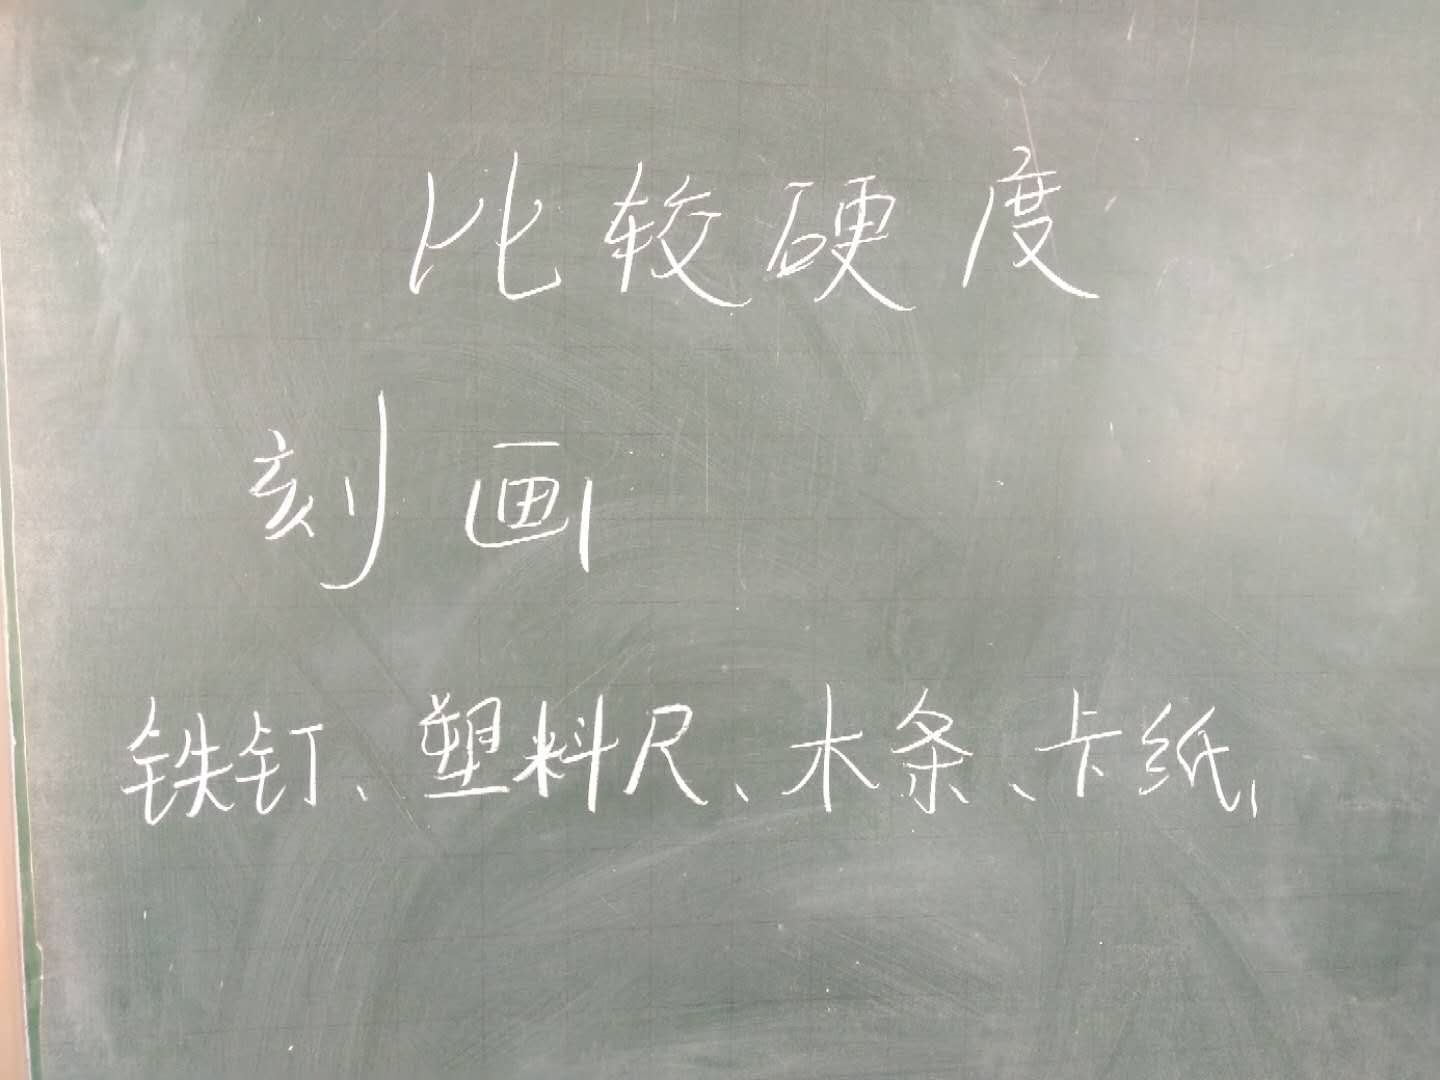 比较硬度
刻画
铁钉、塑料尺、木条、卡纸,